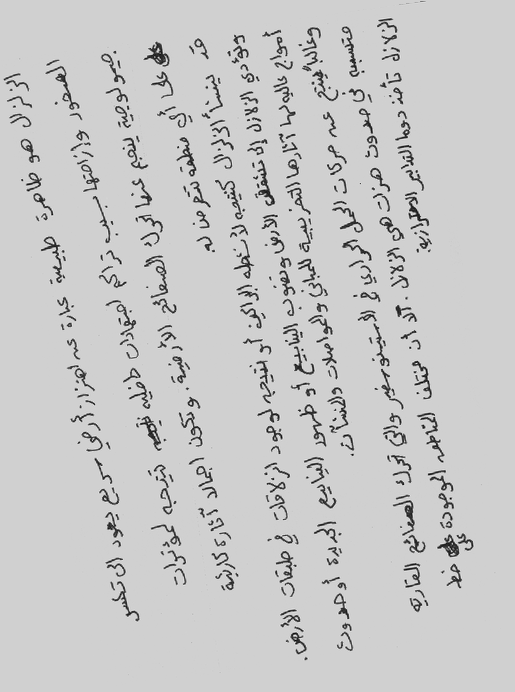 الزلزال هو ظاهرة طبيعية عبارة عن اهتزاز أرضي سريع يعود الى تكسر
الصخور وإزاحتها بسبب تراكم اجهادات داخلية نتيجة لمؤثرات
جيولوجية ينجم عنها تحرك الصفائح الأرضية. وتكون اجمالا آثاره كارثية
على أي منطقة تتعرض له
قد ينشأ الزلزال كنتيجة لأنشطة البراكين أو نتيجة لوجود انزلاقات في طبقات الأرض.
وتؤدي الزلازل إلى تشقق الأرض ونضوب الينابيع أو ظهور الينابيع الجديدة أو حدوث
أمواج عالية لها آثارها التخريبية للمباني والمواصلات والمنشآت.
وغالباً ينتج عن حركات الحمل الحراري في الأستينوسفير والتي تحرك الصفائح القارية
متسببة في حدوث هزات هي الزلازل. الا أن مختلف المناطق الموجودة على خط
الزلازل تأخذ دوما التدابير الاحترازية.